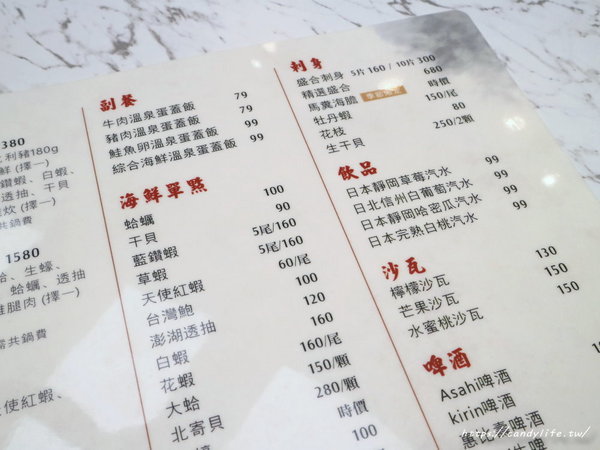 380
利豬180g
鮮(擇一)
鑽蝦、白蝦、
透抽、干貝
炊(擇一)
共鍋費
1580
蛤、生蠔、
蛤蠣、透抽
雞腿肉(擇一)
需共鍋費
天使紅蝦、
副餐
牛肉溫泉蛋蓋飯 79
豬肉溫泉蛋蓋飯 79
鮭魚卵溫泉蛋蓋飯 99
綜合海鮮溫泉蛋蓋飯 99
海鮮單點
蛤蠣 100
干貝 90
藍鑽蝦 5尾/160
草蝦 5尾/160
天使紅蝦 60/尾
台灣鮑 100
澎湖透抽 120
白蝦 160
花蝦 160/尾
大蛤 150/顆
北寄貝 280/顆
時價
100
刺身
盛合刺身 5片160 / 10片300
精選盛合 680
馬糞海膽 時價
牡丹蝦 150/尾
花枝 80
生干貝 250/2顆
飲品
日本靜岡草莓汽水 99
日北信州白葡萄汽水 99
日本靜岡哈密瓜汽水 99
日本完熟白桃汽水 99
沙瓦
檸檬沙瓦 130
芒果沙瓦 150
水蜜桃沙瓦 150
啤酒
Asahi啤酒
kirin啤酒
惠比壽啤酒
https://candylife.tw/